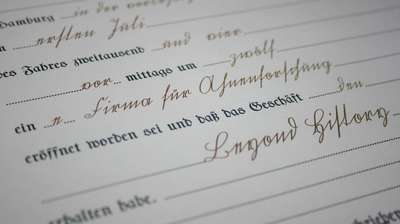 Hamburg in der
ersten Juli
des Jahres zweitausend und vier
vor mittags um zwölf
ein e Firma für Ahnenforschung
eröffnet worden sei und daß das Geschäft den
Beyond History
erhalten habe.